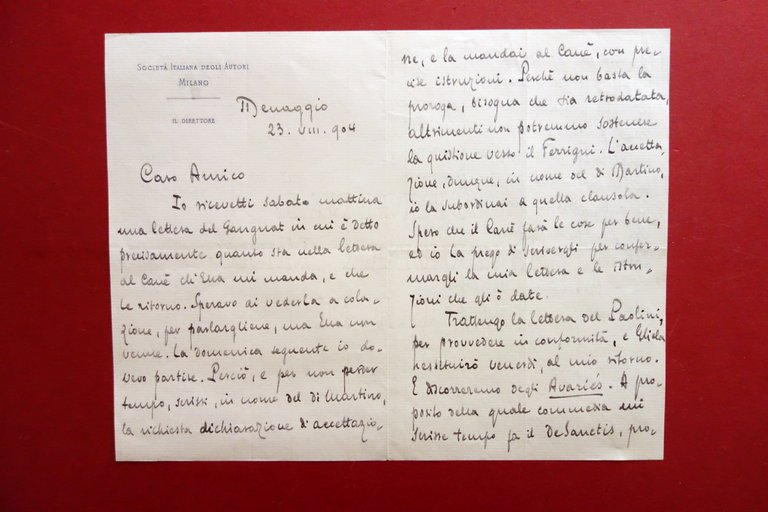 SOCIETÀ ITALIANA DEGLI AUTORI
MILANO
IL DIRETTORE
Menaggio
23. VIII. 904
Caro Amico
Io ricevetti sabato mattina
una lettera del Gangnat in cui è detto
precisamente quanto sta nella lettera
al Cauè ch'Ella mi manda, e che
le ritorno. Speravo di vederLa a cola-
zione, per parlargliene, ma Ella non
venne. La domenica seguente io do-
vevo partire. Perciò, e per non perder
tempo, scrissi, in nome del di Martino,
la richiesta dichiarazione di accettazio-
ne, e la mandai al Cauè, con pre-
cise istruzioni. Perchè non basta la
proroga, bisogna che sia retrodatata,
altrimenti non potremmo sostenere
la quistione verso il Ferrigni. L'accetta-
zione, dunque, in nome del di Martino,
io la subordinai a quella clausola.
Spero che il Cauè farà le cose per bene,
ed io La prego di scriverghi per confer-
margli la mia lettera e le istru-
zioni che gli ò date.
Trattengo la lettera del Paolini,
per provvedere in conformità, e Gliela
restituirò venerdì, al mio ritorno.
E discorreremo degli Avariés. A pro-
posito della quale commedia mi
scrisse tempo fa il De Sanctis, pro-